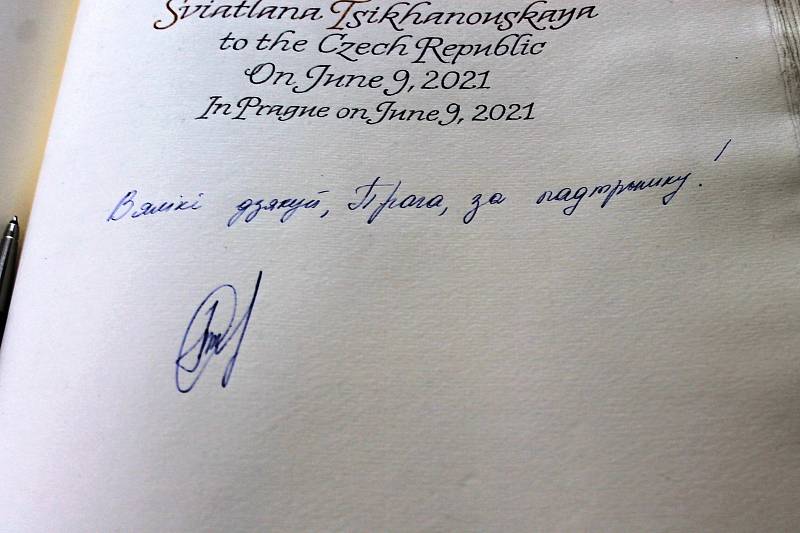 Sviatlana Tsikhanouskaya
to the Czech Republic
On June 9, 2021
In Prague on June 9, 2021
Вялікі дзякуй, Прага, за падтрымку!